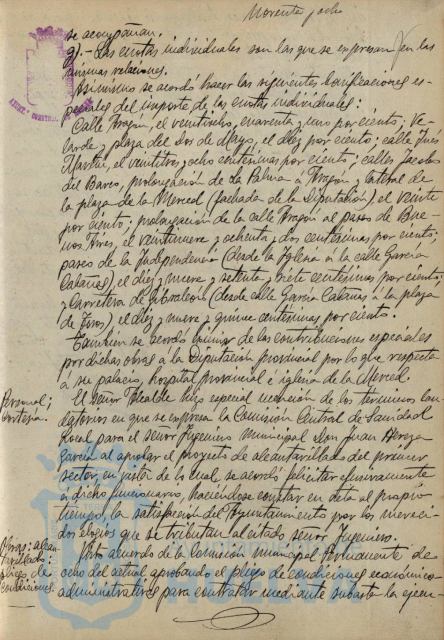 Noventa y ocho
se acompañan.
g).- Las cuotas individuales son las que se expresan en las
mismas relaciones.
Asimismo se acordó hacer las siguientes bonificaciones es-
peciales del importe de las cuotas individuales:
Calle Aragón, el veintiocho, cuarenta y uno por ciento; Ve-
larde y plaza del Dos de Mayo, el diez por ciento; calle Inés
Martín, el veintitres, ocho centésimas por ciento; calles Jacobo
del Barco, prolongación de La Palma á Aragón y lateral de
la plaza de la Merced (fachada de la Diputación), el veinte
por ciento; prolongación de la calle Aragón al paseo de Bue-
nos Aires, el veintinueve y ochenta y dos centésimas por ciento;
paseo de la Independencia (desde la Iglesia a la calle García
Cabañas), el diez y nueve y setenta y siete centésimas por ciento;
y Carretera de (desde calle García Cabañas a la plaza
de Toros), el diez y nueve y quince centésimas por ciento.
También se acordó eximir de las contribuciones especiales
por dichas obras a la Diputación provincial por lo que respecta
a su palacio, hospital provincial é iglesia de la Merced.
Personal;
El señor Alcalde hizo especial mención de los términos lau-
datorios en que se expresa la Comisión Central de Sanidad
Local para el señor Ingeniero Municipal Don Juan
García al aprobar el proyecto de alcantarillado del primer
sector, en vista de lo cual se acordó felicitar efusivamente
a dicho funcionario, haciéndose constar en acta al propio
tiempo, la satisfacción del Ayuntamiento por los mereci-
dos elogios que se tributan al citado señor Ingeniero.
Obras: alcan-
tarillado:
pliego de
condiciones.
Visto acuerdo de la Comisión municipal permanente de
ocho del actual aprobando el pliego de condiciones económico-
administrativas para contratar mediante subasta la ejecu-